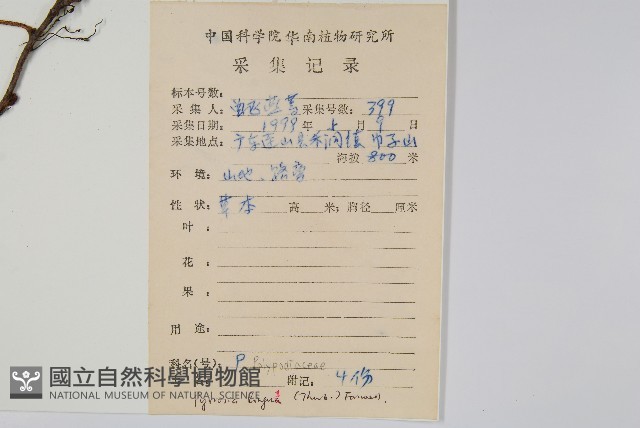 中国科学院华南植物研究所
采集记录
标本号数:
采集人: 曾飞燕等 采集号数: 399
采集日期: 1998年 5月 9日
采集地点: 广东连山县禾洞镇 巾子山
海拔 800 米
环境: 山地、路旁
性状: 草本 高 米; 胸径 厘米
叶:
花:
果:
用途:
科名(号): P Polypodiaceae
附记: 4份
國立自然科學博物館
NATIONAL MUSEUM OF NATURAL SCIENCE
Pyrrosia lingua (Thunb.) Farwell.